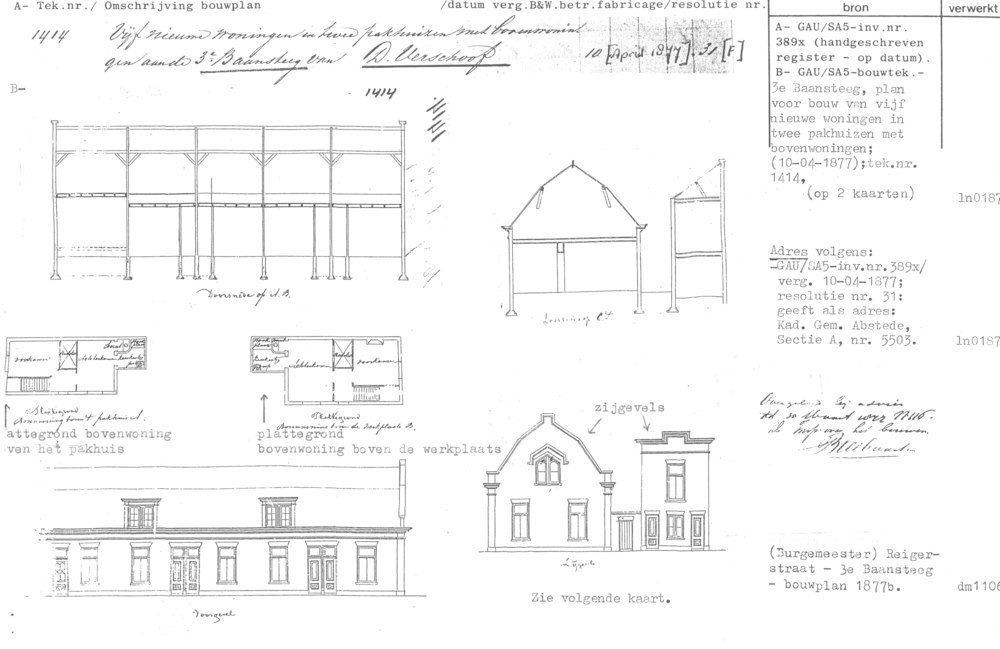 A- Tek.nr./ Omschrijving bouwplan
/datum verg.B&W.betr.fabricage/resolutie nr.
bron
verwerkt
1414
Vijf nieuwe woningen en twee pakhuizen met bovenwonin
gen aan de 3e Baansteeg van D. Verschoof
10 [April 1877]. 31 [F]
A- GAU/SA5-inv.nr.
389x (handgeschreven
register - op datum).
B- GAU/SA5-bouwtek.-
3e Baansteeg, plan
voor bouw van vijf
nieuwe woningen in
twee pakhuizen met
bovenwoningen;
(10-04-1877);tek.nr.
1414,
(op 2 kaarten)
ln0187
B-
1414
Doorsnede op A.B.
Doorsnede C.D.
Adres volgens:
-GAU/SA5-inv.nr.389x/
verg. 10-04-1877;
resolutie nr. 31:
geeft als adres:
Kad. Gem. Abstede,
Sectie A, nr. 5503.
ln0187
voorkamer
achterkamer
achterkamer
voorkamer
Plattegrond
Bovenwoning boven 't pakhuis A.
Plattegrond
Bovenwoning boven de werkplaats B.
attegrond bovenwoning
ven het pakhuis
plattegrond
bovenwoning boven de werkplaats
zijgevels
Voorgevel
Zijgevels
Zie volgende kaart.
(Burgemeester) Reiger-
straat - 3e Baansteeg
- bouwplan 1877b.
dm1106